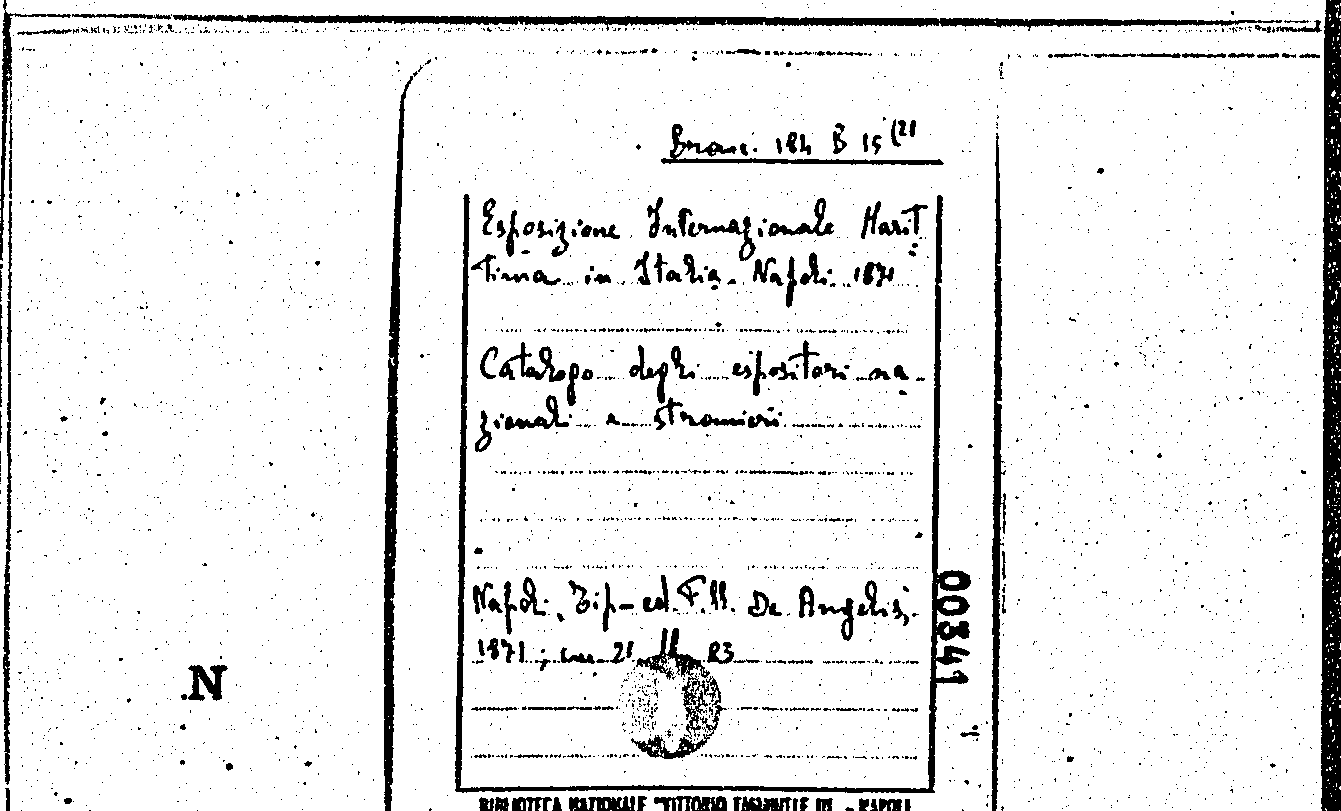 Branc. 184 B 15 (21
Esposizione Internazionale Marit
tima in Italia. Napoli 1871
Catalogo degli espositori na-
zionali e stranieri
Napoli, Tip-ed. F.lli De Angelis,
1871; cm. 21 pp. 83
00341
N
BIBLIOTECA NAZIONALE "VITTORIO EMANUELE III" - NAPOLI